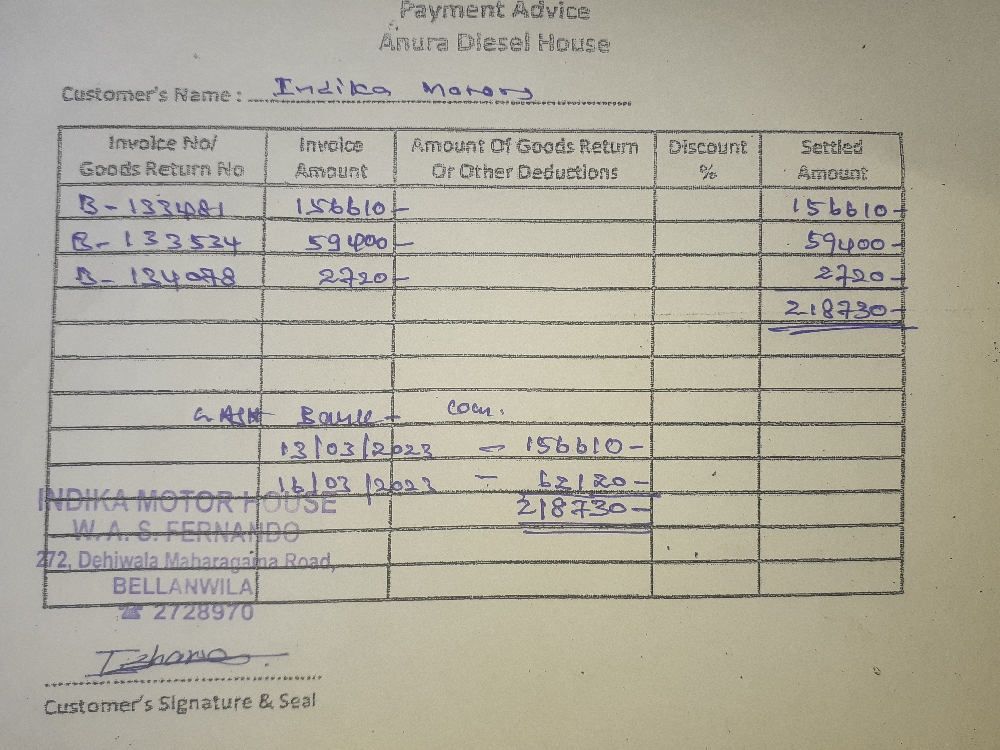 Payment Advice
Anura Diesel House
Customer's Name : Indika Motors
Invoice No/ Goods Return No Invoice Amount Amount Of Goods Return Or Other Deductions Discount % Settled Amount
B - 133481 156610- 156610-
B - 133534 59400- 59400-
B - 134078 2720- 2720-
218730-
CASH
13/03/2023 - 156610-
16/03/2023 - 62120-
218730-
INDIKA MOTOR HOUSE
W. A. S. FERNANDO
272, Dehiwala Maharagama Road,
BELLANWILA
☎ 2728970
Customer's Signature & Seal